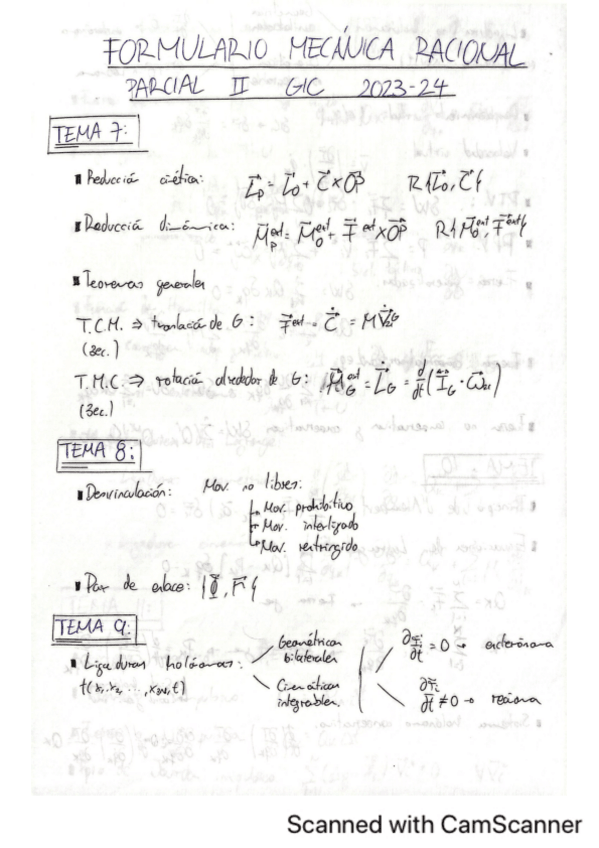 FORMULARIO MECÁNICA RACIONAL
PARCIAL II GIC 2023-24
TEMA 7:
▪ Reducció cinética: L⃗p = L⃗o + C⃗ × OP⃗ R{L⃗o, C⃗}
▪ Reducció dinámica: M⃗p^ext = M⃗o^ext + F⃗^ext × OP⃗ R{M⃗o^ext, F⃗^ext}
▪ Teoremas generales
T.C.M. ⇒ traslació de G: F⃗^ext = Ċ⃗ = M
(3ec.)
T.M.C. ⇒ rotació alrededor de G: M⃗G^ext = L̇⃗G = d/dt (I_G · ω⃗)
(3ec.)
TEMA 8:
▪ Desvinculación: Mov. no libres:
Mov. prohibitivo
Mov. interligado
Mov. restringido
▪ Par de enlace: {Φ⃗, F⃗}
TEMA 9:
▪ Ligaduras holónomas: Geométricas bilaterales ∂r⃗i/∂t = 0 →
f(x₁, x₂, ..., x₃N, t) Cinemáticas integrables. ∂r⃗i/∂t ≠ 0 → reónoma
Scanned with CamScanner